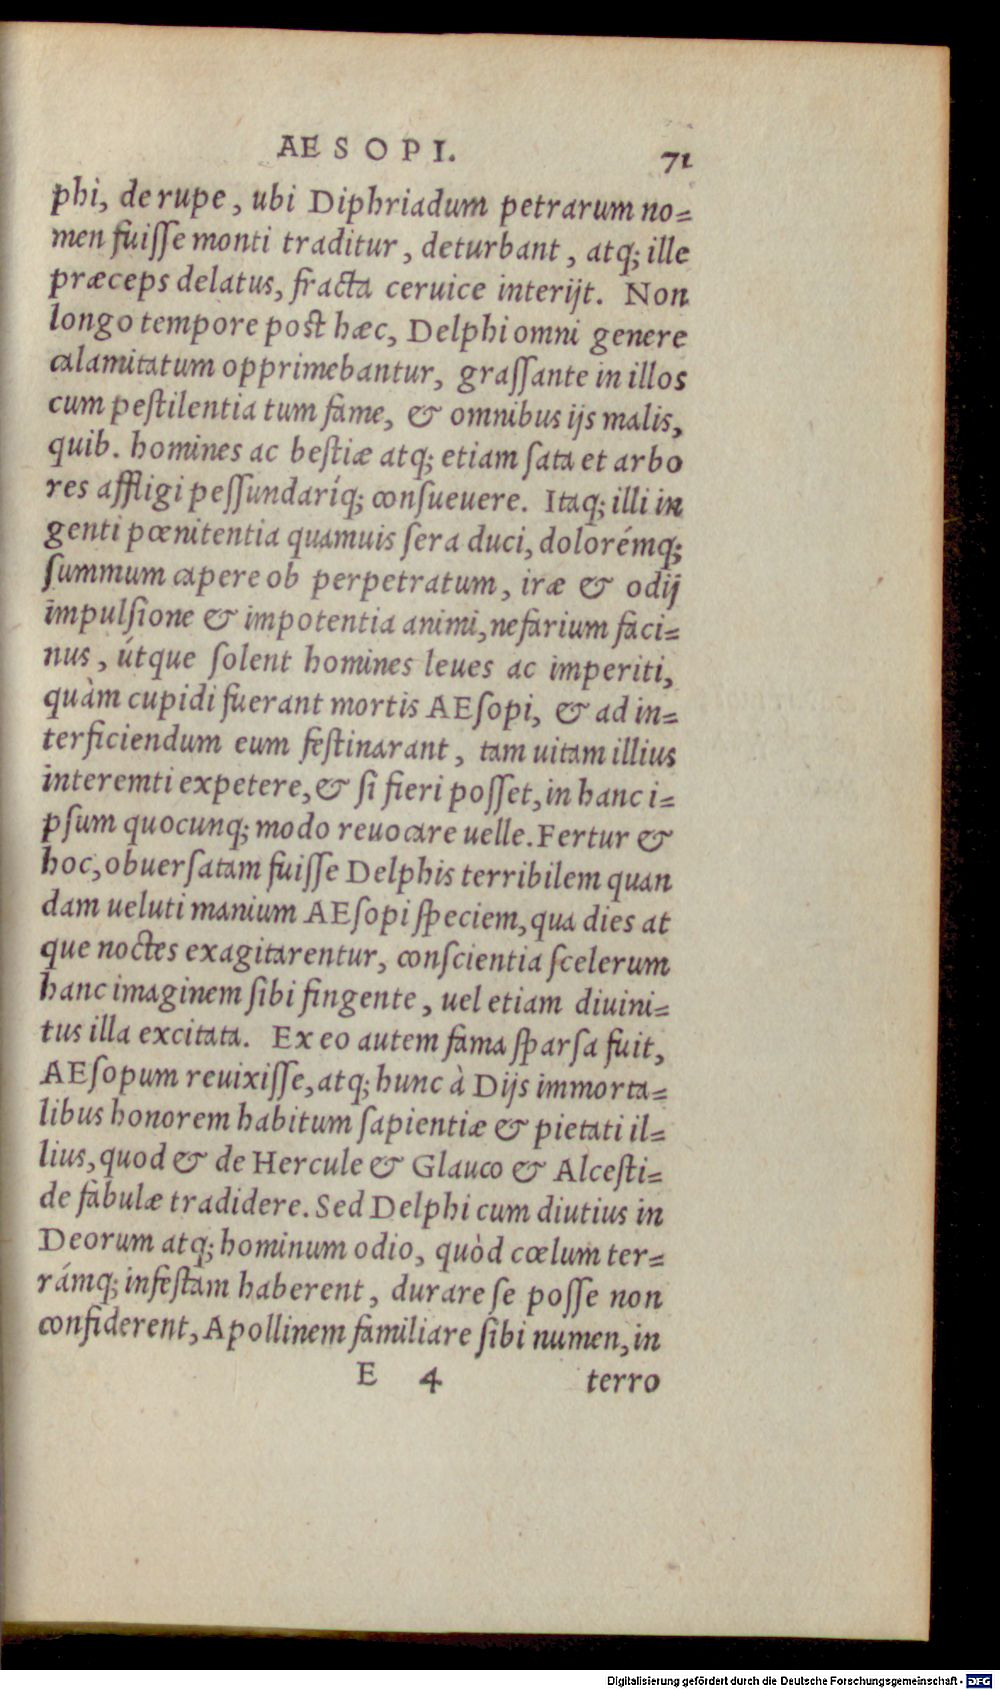 AESOPI. 71
phi, de rupe, ubi Diphriadum petrarum no=
men fuiſſe monti traditur, deturbant, atq; ille
præceps delatus, fracta ceruice interijt. Non
longo tempore post hæc, Delphi omni genere
calamitatum opprimebantur, graſſante in illos
cum peſtilentia tum fame, & omnibus ijs malis,
quib. homines ac beſtiæ atq; etiam ſata et arbo
res affligi peſſundaríq; conſueuere. Itaq; illi in
genti pœnitentia quamuis ſera duci, dolorémq;
ſummum capere ob perpetratum, iræ & odij
impulſione & impotentia animi, nefarium faci=
nus, útque ſolent homines leues ac imperiti,
quàm cupidi fuerant mortis AEſopi, & ad in=
terficiendum eum feſtinarant, tam uitam illius
interemti expetere, & ſi fieri poſſet, in hanc i=
pſum quocunq; modo reuocare uelle. Fertur &
hoc, obuerſatam fuiſſe Delphis terribilem quan
dam ueluti manium AEſopi ſpeciem, qua dies at
que noctes exagitarentur, conſcientia ſcelerum
hanc imaginem ſibi fingente, uel etiam diuini=
tus illa excitata. Ex eo autem fama ſparſa fuit,
AEſopum reuixiſſe, atq; hunc à Dijs immorta=
libus honorem habitum ſapientiæ & pietati il=
lius, quod & de Hercule & Glauco & Alceſti=
de fabulæ tradidere. Sed Delphi cum diutius in
Deorum atq; hominum odio, quòd cœlum ter=
rámq; infeſtam haberent, durare ſe poſſe non
confiderent, Apollinem familiare ſibi numen, in
E 4 terro
Digitalisierung gefördert durch die Deutsche Forschungsgemeinschaft - DFG